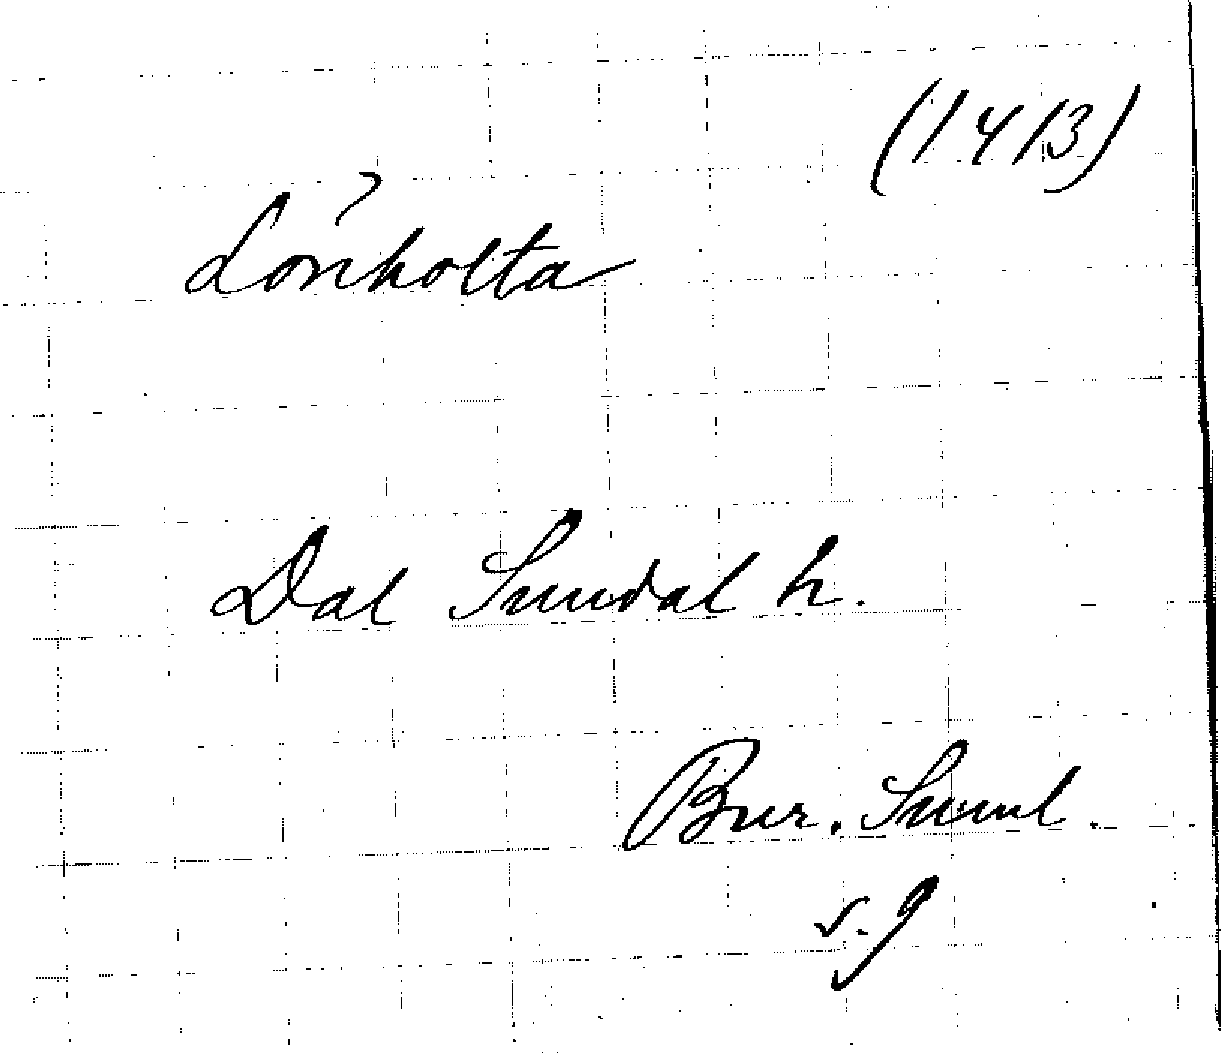 (1413)
Lönholta
Dal Sundal h.
Bur. Suml.
s. 9